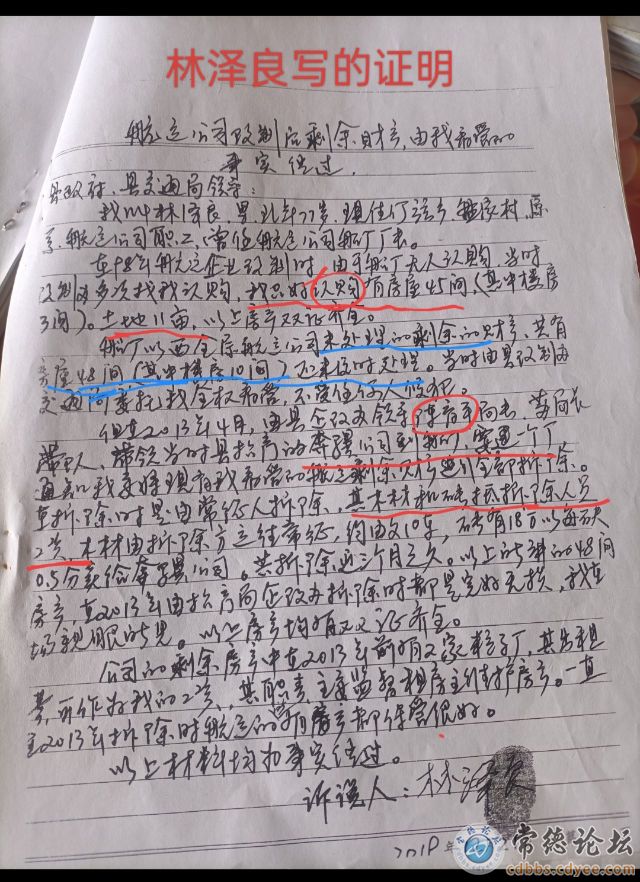 林泽良写的证明
航运公司改制后剩余财产,由我看管的
事实经过
县政府、县交通局领导:
我叫林泽良,男,现年77岁,现住 村,原
系航运公司职工,常住航运公司船厂。
在98年航运企业改制时,由于船厂无人认购,当时
改制 多次找我认购,我只好认购有房屋45间(其中楼房
3间)。土地11亩,以上房产双证齐全。
船厂以西全原航运公司未处理的剩余的财产,共有
房屋48间(其中楼房10间) 未处理。当时由县改制办
交通局委托我全权看管,不准任何人侵犯。
但在2013年4月,由县企改办领导陈 同志、 局长
带人、带领当时县 公司到船厂,突 一个
通知我要将现有我看管的航运剩余财产 全部拆除。
在拆除时是由常征人拆除,其木材机砖抵拆除人员
工资,木材由拆除方运往常征,约由 10车,砖有18万以每块
0.5分 给 公司。共拆除近三个月之久。以上 的48间
房产,在2013年由 局企改办拆除时都是完好无损,我在
场亲眼所见。以上房产均有双证齐全。
公司的剩余房产中在2013年前有2家 厂,其房租
作为我的工资,其职责主要监督租房主维护房产。一直
至2013年拆除时航运的所有房产都保管很好。
以上材料均为事实经过。
诉说人:林泽良
2018年
常德论坛
cdbbs.cdyee.com